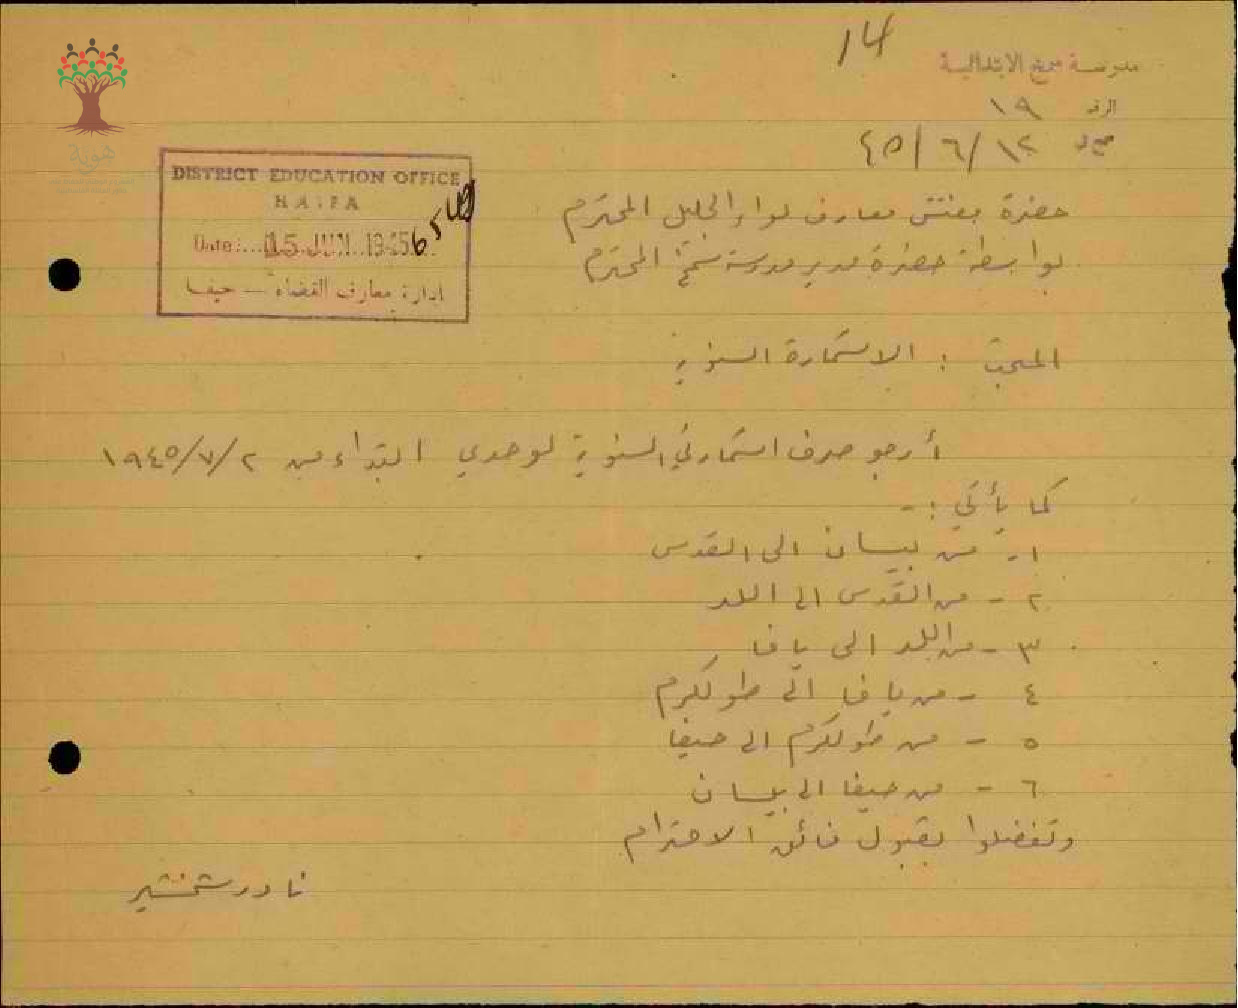 14
مدرسة سمخ الابتدائية
الرقم ١٩
سمخ في ١٢/٦/٤٥
هوية
DISTRICT EDUCATION OFFICE
HAIFA
Date: 15 JUN 1945
ادارة معارف القضاء — حيفا
حضرة مفتش معارف لواء الجليل المحترم
بواسطة حضرة مدير مدرسة سمخ المحترم
المبحث : الاستمارة السنوية
أرجو صرف استمارتي السنوية لوحدي ابتداء من ٢/٧/١٩٤٥
كما يأتي :-
١- من بيسان الى القدس
٢- من القدس الى اللد
٣- من اللد الى يافا
٤- من يافا الى طولكرم
٥- من طولكرم الى حيفا
٦- من حيفا الى بيسان
وتفضلوا بقبول فائق الاحترام
نادر شخشير